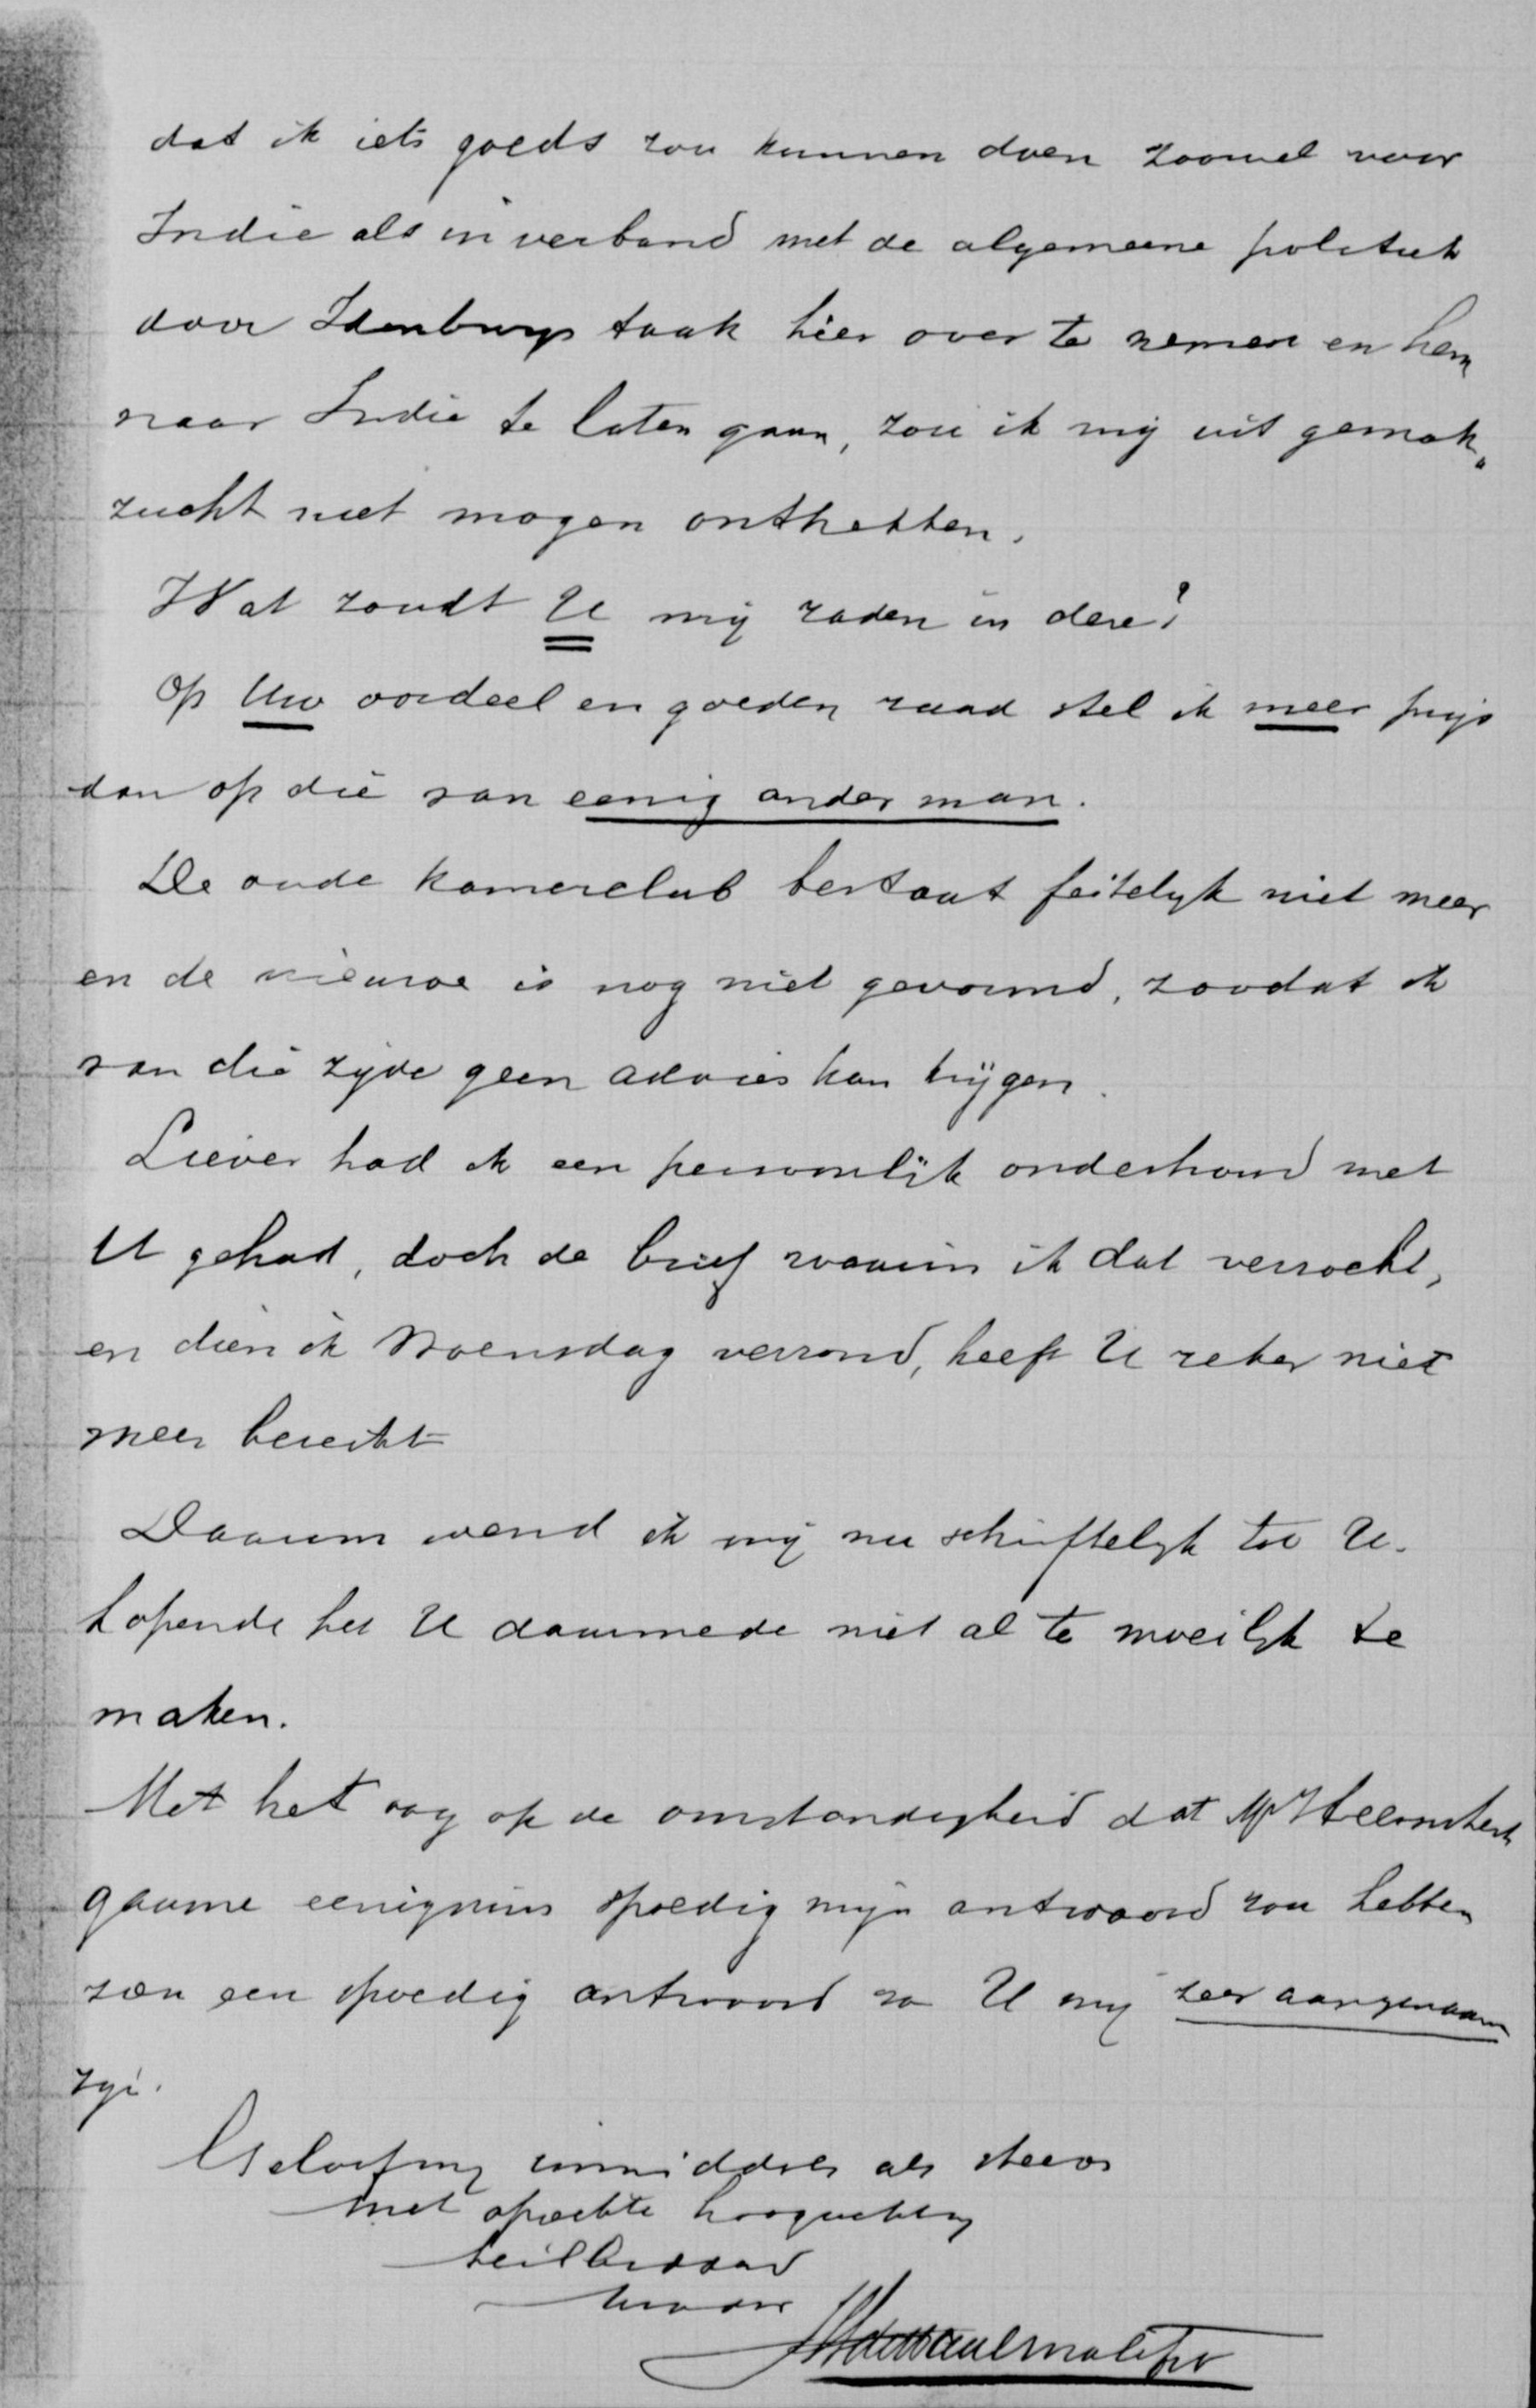 dat ik iets goeds zou kunnen doen zoowel voor
Indie als in verband met de algemeene politiek
door Idenburgs taak hier over te nemen en hem
naar Indie te laten gaan, zou ik mij uit gemak„
zucht niet mogen onttrekken.
Wat zoudt U mij raden in deze?
Op Uw oordeel en goeden raad stel ik meer prijs
dan op die van eenig ander man.
De oude kamerclub bestaat feitelijk niet meer
en de nieuwe is nog niet gevormd, zoodat ik
van die zijde geen advies kan krijgen.
Liever had ik een persoonlijk onderhoud met
U gehad, doch de brief waarin ik dat verzocht,
en dien ik Woensdag verzond, heeft U zeker niet
meer bereikt
Daarom wend ik mij nu schriftelijk tot U.
hopende het U daarmede niet al te moeilijk te
maken.
Met het oog op de omstandigheid dat Mr Heemskerk
gaarne eenigzins spoedig mijn antwoord zou hebben
zou een spoedig antwoord van U mij zeer aangenaam
zijn.
Geloof mij inmiddels als steeds
met oprechte hoogachting
heilbiddend